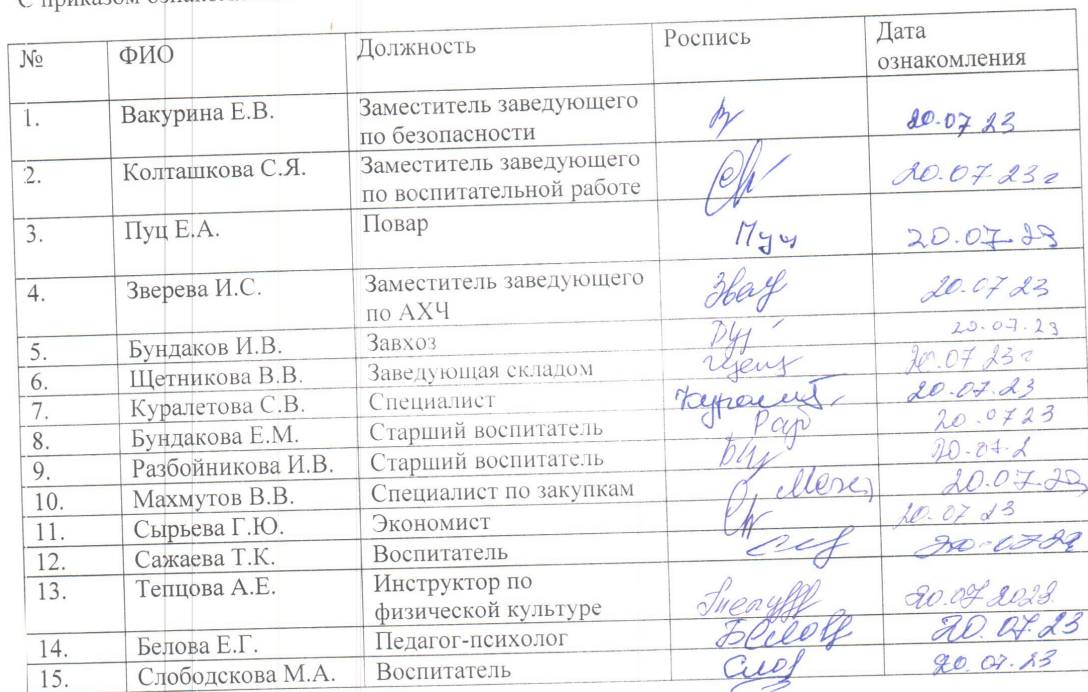 С приказом
№ ФИО Должность Роспись Дата
ознакомления
1. Вакурина Е.В. Заместитель заведующего
по безопасности 20.07 23
2. Колташкова С.Я. Заместитель заведующего
по воспитательной работе 20.07.23г
3. Пуц Е.А. Повар Пуц 20.07.23
4. Зверева И.С. Заместитель заведующего
по АХЧ 20.07 23
5. Бундаков И.В. Завхоз 20.07.23
6. Щетникова В.В. Заведующая складом 20.07 23г
7. Куралетова С.В. Специалист 20.07.23
8. Бундакова Е.М. Старший воспитатель 20.0723
9. Разбойникова И.В. Старший воспитатель 20.07.2
10. Махмутов В.В. Специалист по закупкам 20.07.23
11. Сырьева Г.Ю. Экономист 20.07 23
12. Сажаева Т.К. Воспитатель 20.07.23
13. Тепцова А.Е. Инструктор по
физической культуре 20.07.2023.
14. Белова Е.Г. Педагог-психолог 20.07.23
15. Слободскова М.А. Воспитатель 20.07.23